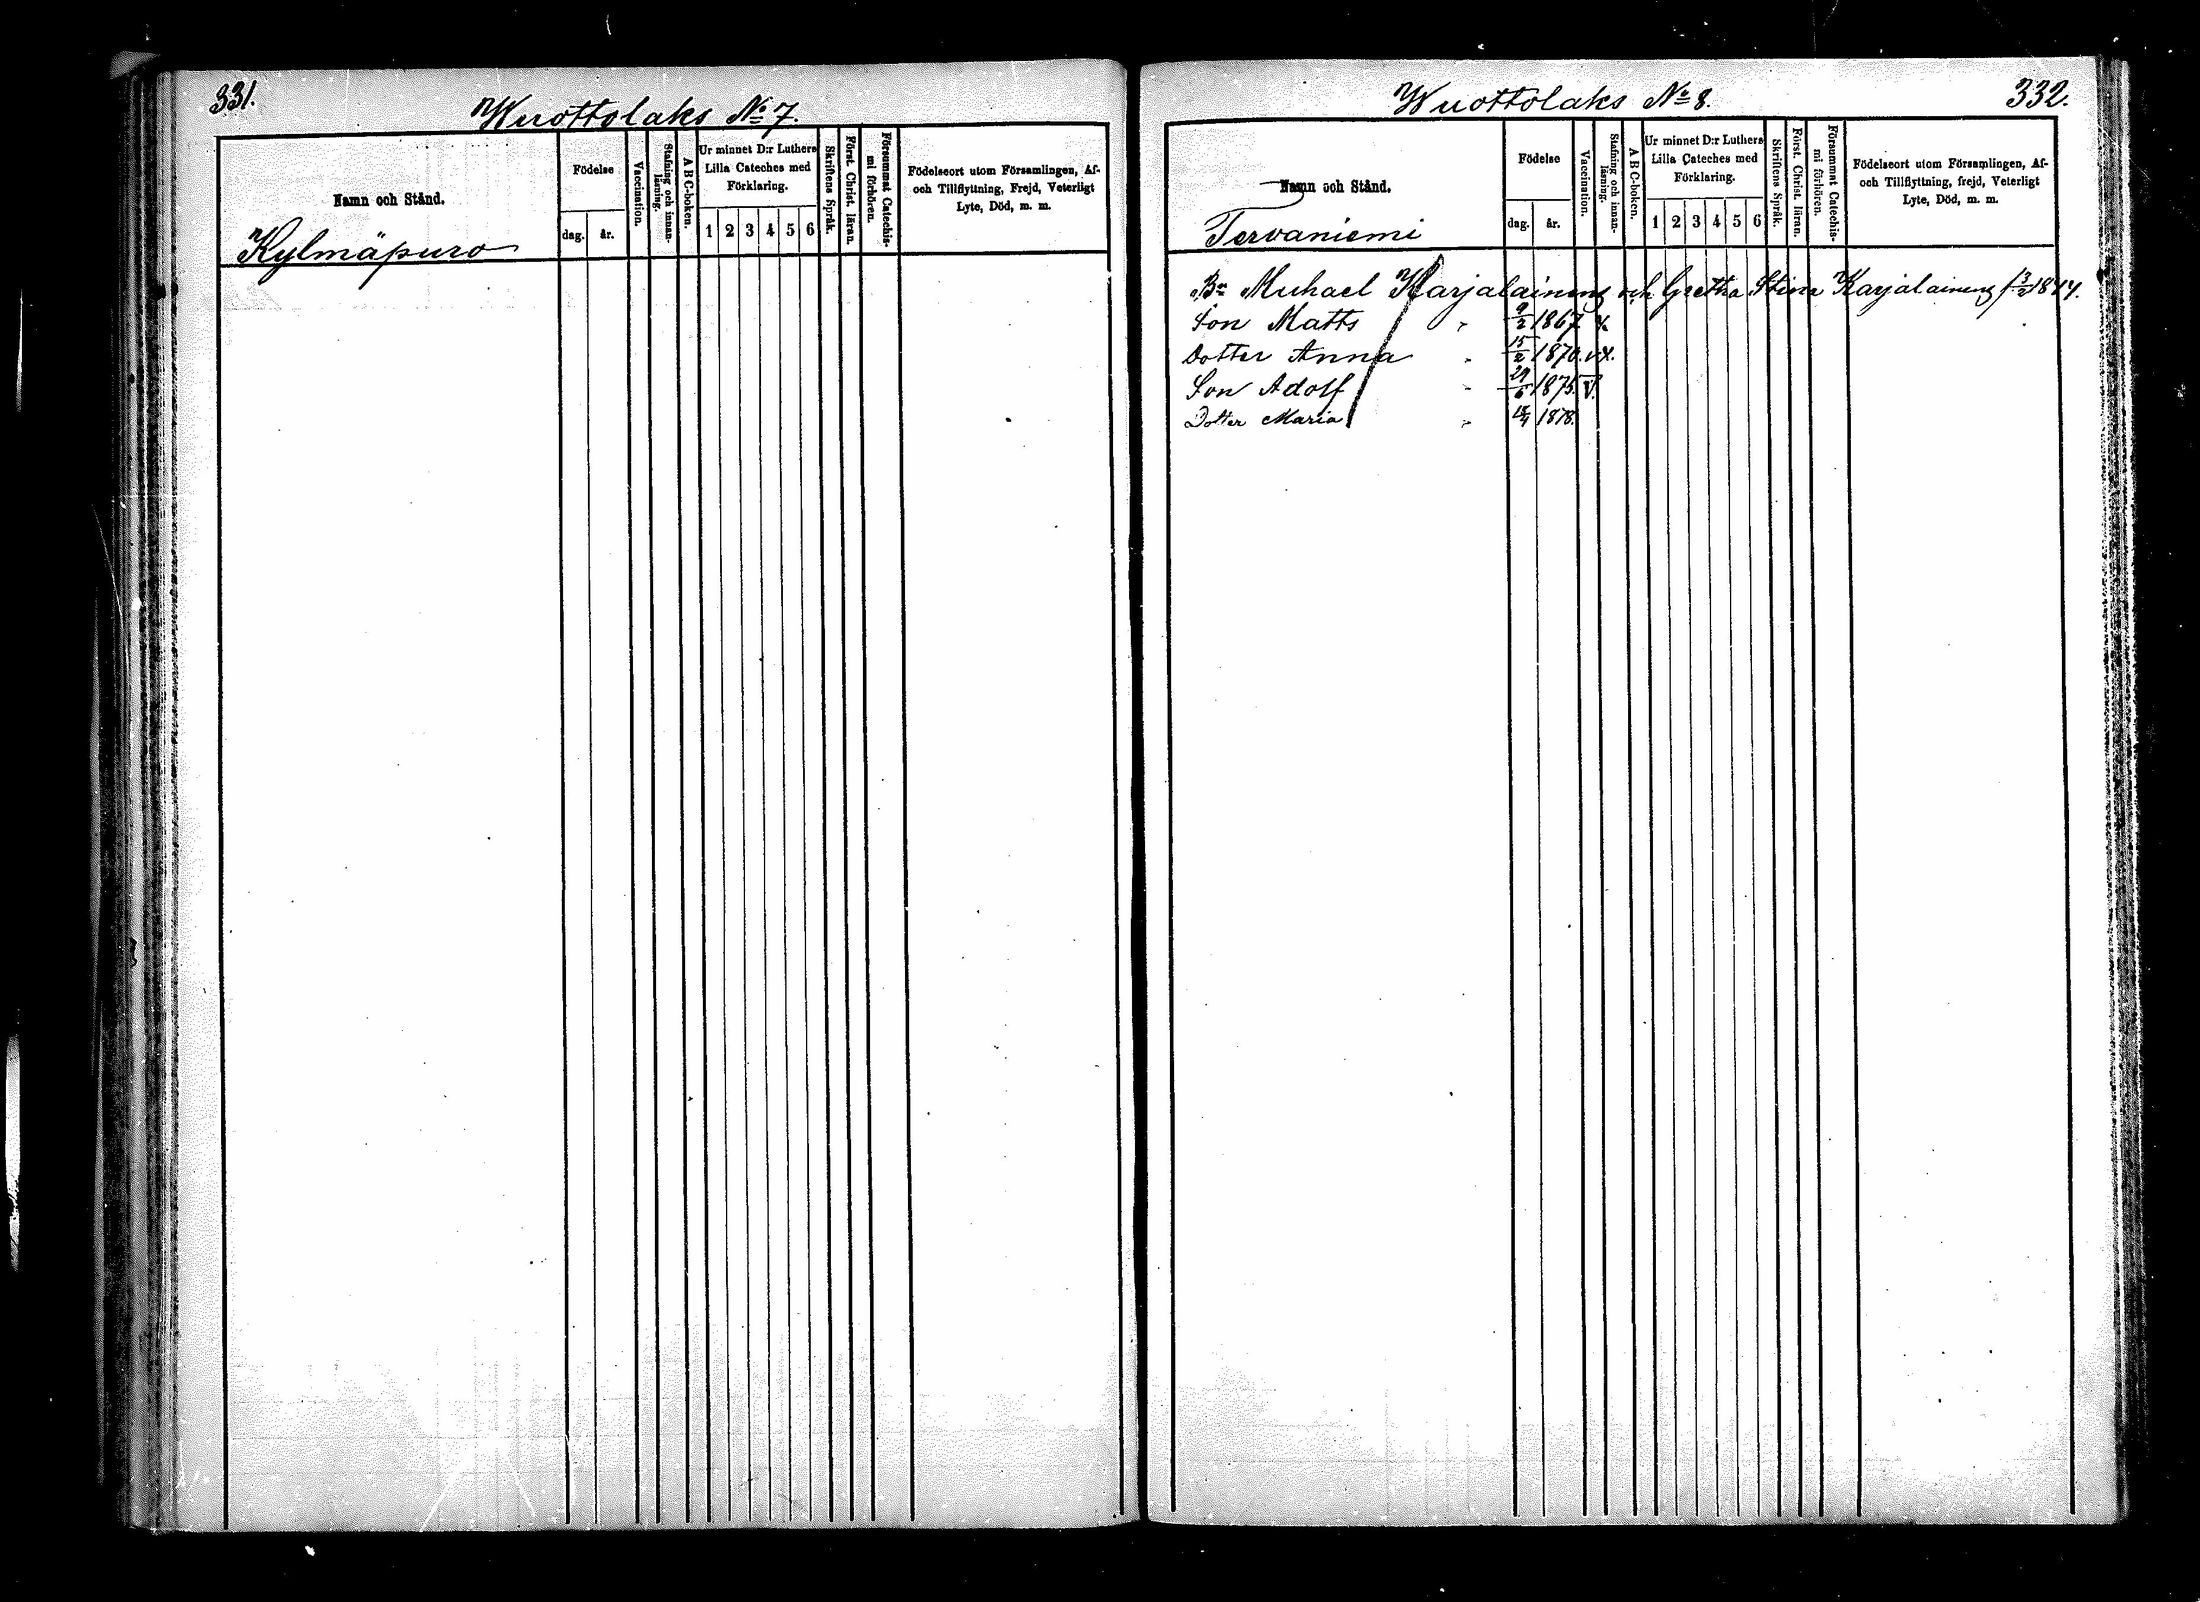 331.
Wuottolaks No 7.
Namn och Stånd.
Kylmäpuro
Födelse
dag.
år.
Vaccination.
Stafning och innan-
läsning.
A B C-boken.
Ur minnet D:r Luthers
Lilla Cateches med
Förklaring.
1 2 3 4 5 6
Skriftens Språk.
Först. Christ. läran.
Försummat Catechis-
mi förhören.
Födelseort utom Församlingen, Af-
och Tillflyttning, Frejd, Veterligt
Lyte, Död, m. m.
332.
Wuottolaks No 8.
Namn och Stånd.
Tervaniemi
Födelse
dag.
år.
Vaccination.
Stafning och innan-
läsning.
A B C-boken.
Ur minnet D:r Luthers
Lilla Cateches med
Förklaring.
1 2 3 4 5 6
Skriftens Språk.
Först. Christ. läran.
Försummat Catechis-
mi förhören.
Födelseort utom Församlingen, Af-
och Tillflyttning, frejd, Veterligt
Lyte, Död, m. m.
Bn Michael Karjalainens och Gretha Stina Karjalainens f 3/2 1844.
Son Matts " 9/2 1867.
Dotter Anna " 15/2 1870. v.
Son Adolf " 29/6 1875. v.
Dotter Maria " 1878.